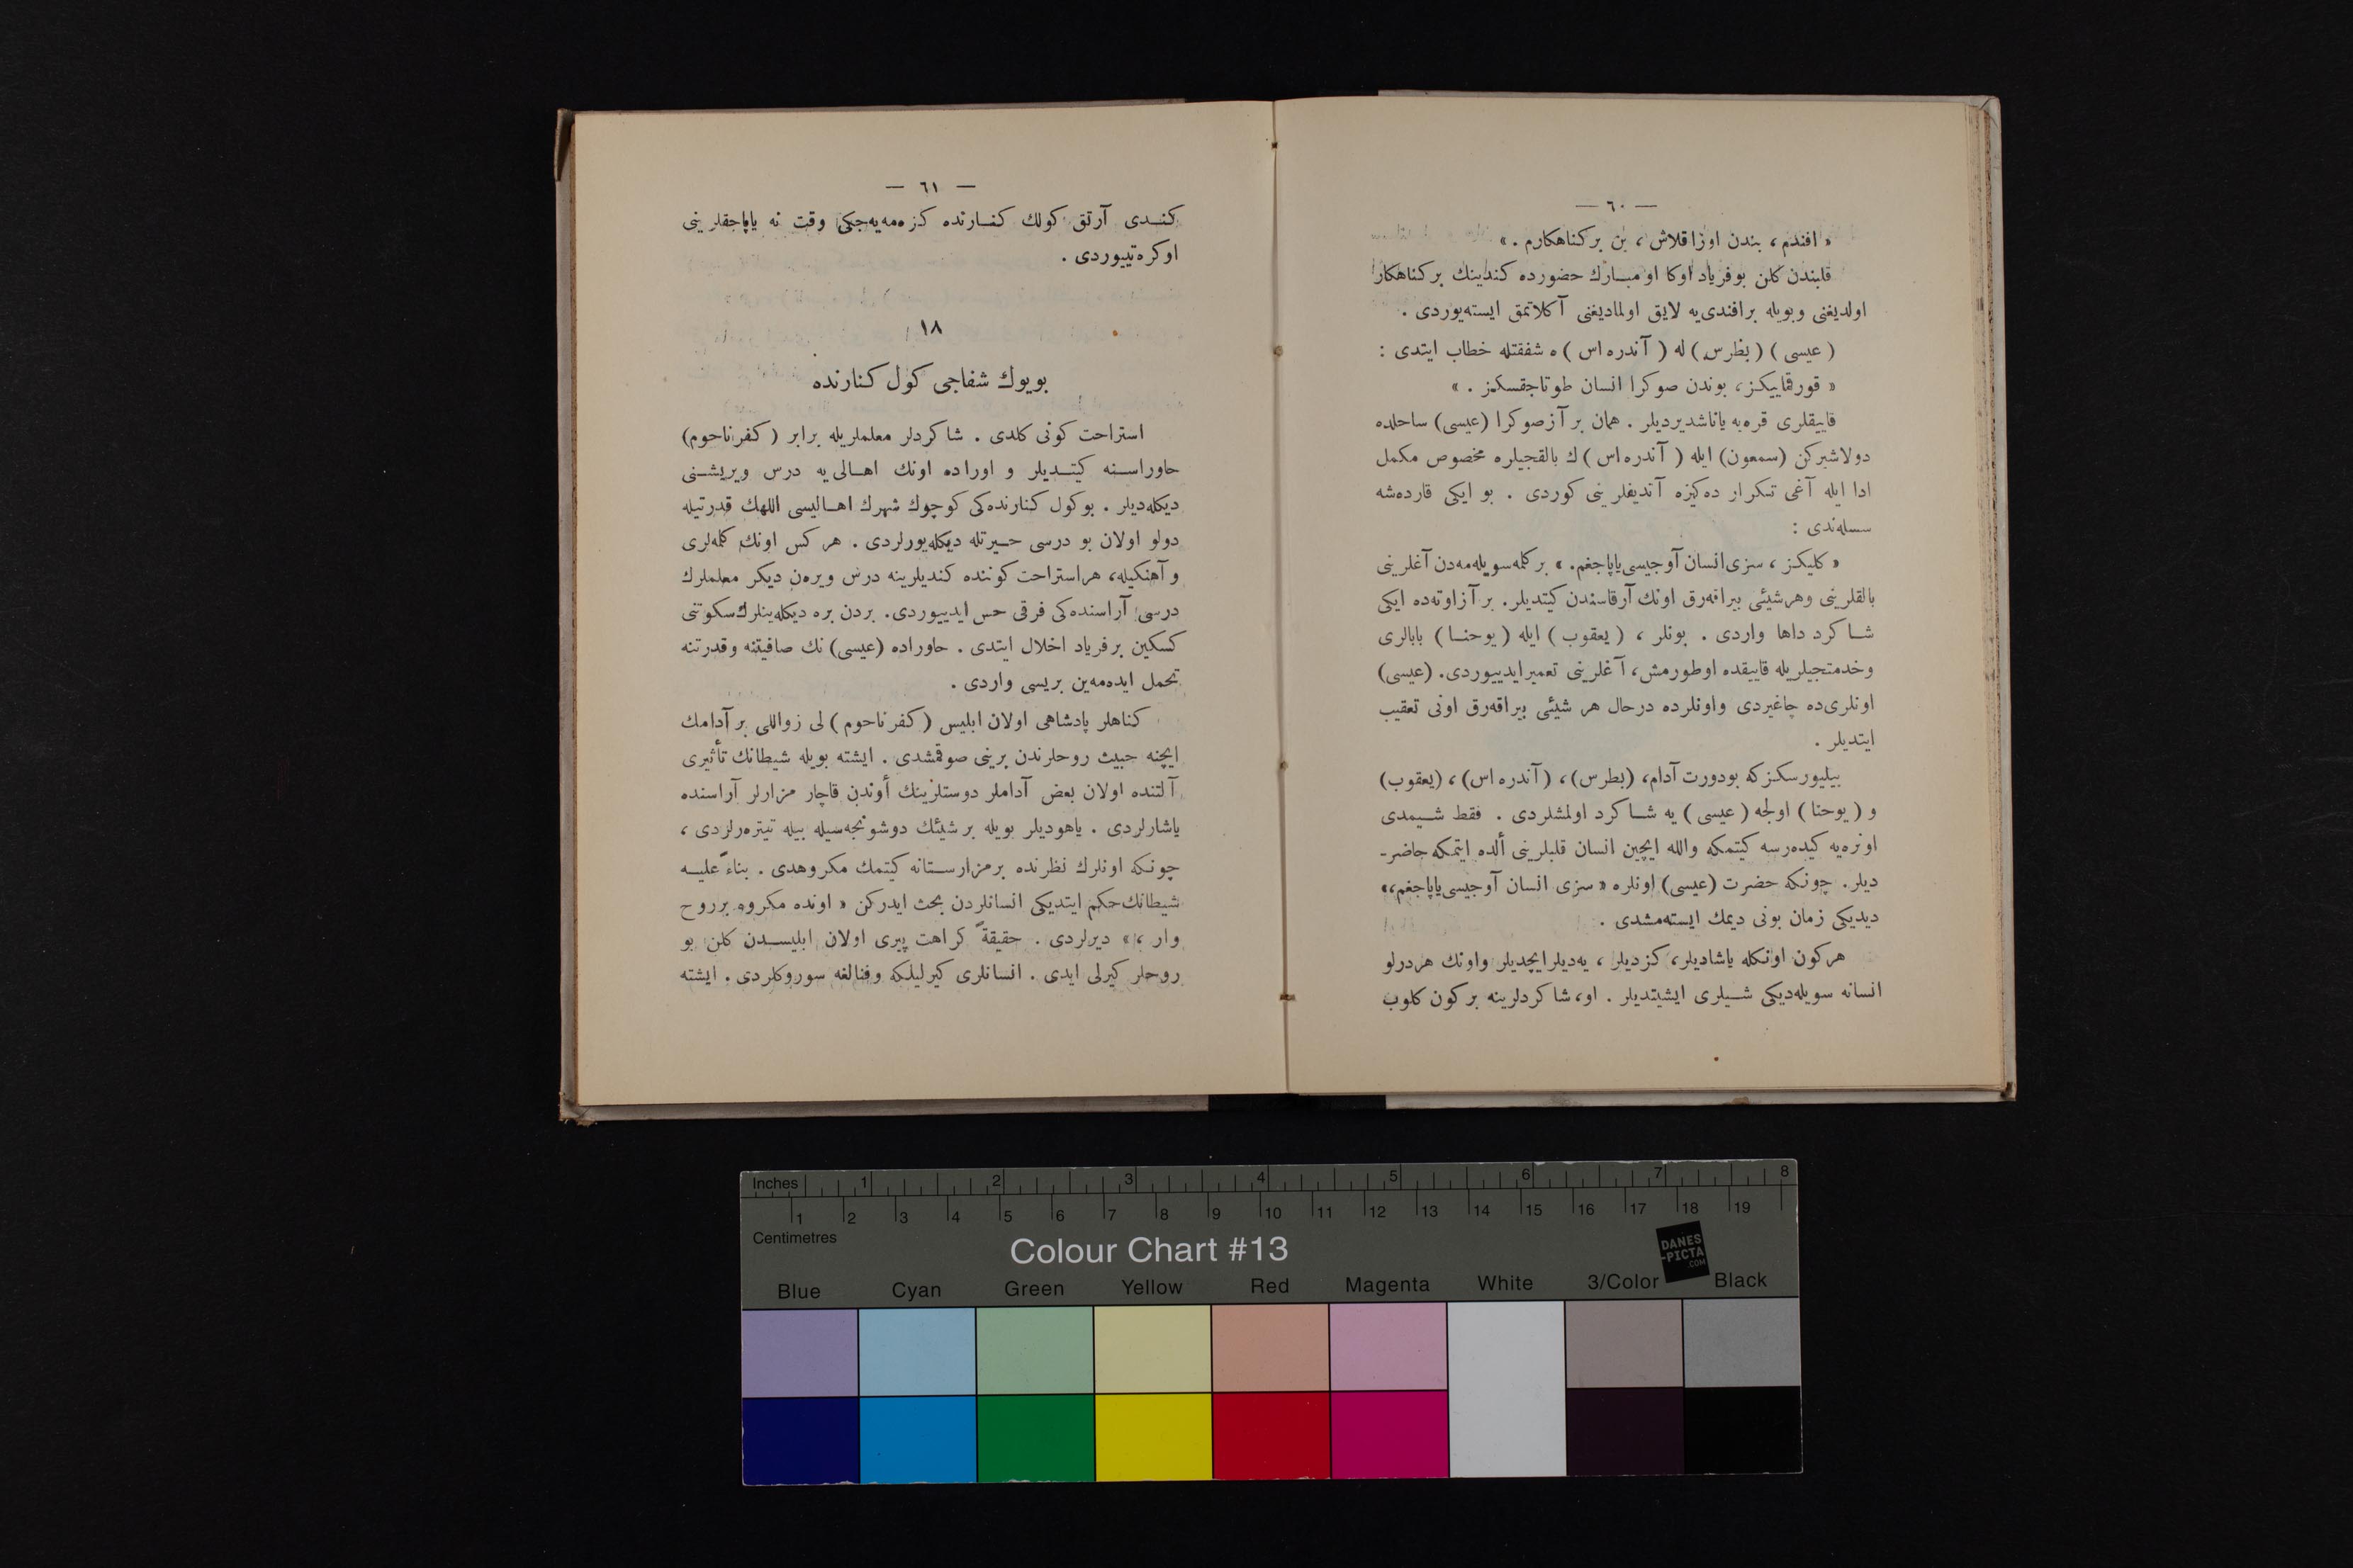 — ٦٠ —
« افندم ، بندن اوزاقلاش ، بن بر كناهكارم . »
قلبندن كلن بو فرياد اوكا او مبارك حضورده كندينك بر كناهكار
اولديغنى وبويله بر افندى‌يه لايق اولماديغنى آكلاتمق ايسته‌يوردى .
( عيسى ) ( بطرس ) له ( آندره اس ) ه شفقتله خطاب ايتدى :
« قورقماييكز ، بوندن صوكرا انسان طوتاجقسكز . »
قاييقلرى قره‌يه ياناشديرديلر . همان بر آز صوكرا (عيسى) ساحلده
دولاشيركن (سمعون) ايله ( آندره اس ) ك بالقجيلره مخصوص مكمل
ادا ايله آغى تكرار ده‌كيزه آتديغلرينى كوردى . بو ايكى قارده‌شه
سسله‌ندى :
« كليكز ، سزى انسان آوجيسى ياپاجغم. » بر كلمه سويله‌مه‌دن آغلرينى
بالقلرينى وهر شيئى بيراقه‌رق اونك آرقاسندن كيتديلر. بر آز اوته‌ده ايكى
شاكرد داها واردى . بونلر ، ( يعقوب ) ايله ( يوحنا ) بابالرى
وخدمتجيلريله قاييقده اوطورمش، آغلرينى تعمير ايدييوردى. (عيسى)
اونلرى‌ده چاغيردى واونلرده درحال هر شيئى بيراقه‌رق اونى تعقيب
ايتديلر .
بيليورسكز كه بو دورت آدام، (بطرس)، ( آندره اس) ، (يعقوب)
و ( يوحنا ) اولجه ( عيسى ) يه شاكرد اولمشلردى . فقط شيمدى
او نره‌يه كيده‌رسه كيتمكه والله ايچين انسان قلبلرينى ألده ايتمكه حاضر-
ديلر. چونكه حضرت (عيسى) اونلره « سزى انسان آوجيسى ياپاجغم، »
ديديكى زمان بونى ديمك ايسته‌مشدى .
هر كون اونكله ياشاديلر، كزديلر ، يه‌ديلر ايچديلر واونك هر درلو
انسانه سويله‌ديكى شيلرى ايشيتديلر . او، شاكردلرينه بر كون كلوب
— ٦١ —
كندى آرتق كولك كنارنده كزه‌مه‌يه‌جكى وقت نه ياپاجقلرينى
اوكره‌تييوردى .
١٨
بويوك شفاجى كول كنارنده
استراحت كونى كلدى . شاكردلر معلملريله برابر ( كفرناحوم)
حاوراسنه كيتديلر و اوراده اونك اهالى يه درس ويريشنى
ديكله‌ديلر . بو كول كنارنده‌كى كوچوك شهرك اهاليسى اللهك قدرتيله
دولو اولان بو درسى حيرتله ديكله‌يورلردى . هر كس اونك كلمه‌لرى
و آهنكيله، هر استراحت كوننده كنديلرينه درس ويره‌ن ديكر معلملرك
درسى آراسنده‌كى فرقى حس ايدييوردى. بردن بره ديكله‌ينلرك سكوتنى
كسكين بر فرياد اخلال ايتدى . حاوراده (عيسى) نك صافيتنه وقدرتنه
تحمل ايده‌مه‌ين بريسى واردى .
كناهلر پادشاهى اولان ابليس ( كفرناحوم ) لى زواللى بر آدامك
ايچنه خبيث روحلرندن برينى صوقمشدى . ايشته بويله شيطانك تأثيرى
آلتنده اولان بعض آداملر دوستلرينك أوندن قاچار مزارلر آراسنده
ياشارلردى . ياهوديلر بويله بر شيئك دوشونجه‌سيله بيله تيتره‌رلردى ،
چونكه اونلرك نظرنده بر مزارستانه كيتمك مكروهدى . بناءً عليه
شيطانك حكم ايتديكى انسانلردن بحث ايدركن « اونده مكروه بر روح
وار ، » ديرلردى . حقيقةً كراهت پيرى اولان ابليسدن كلن بو
روحلر كيرلى ايدى . انسانلرى كيرليلكه وفنالغه سوروكلردى . ايشته
Inches 1 2 3 4 5 6 7 8
1 2 3 4 5 6 7 8 9 10 11 12 13 14 15 16 17 18 19
Centimetres
Colour Chart #13
DANES
-PICTA
.COM
Blue Cyan Green Yellow Red Magenta White 3/Color Black